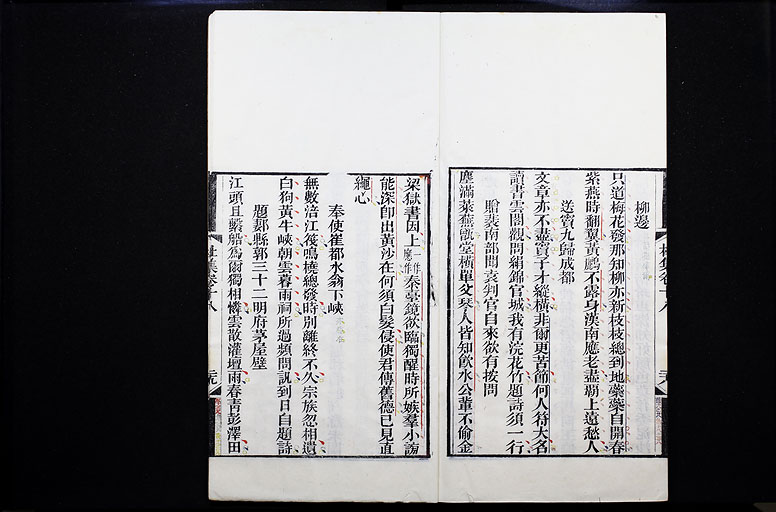 柳邊
只道梅花發那知柳亦新枝枝總到地葉葉自開春
紫燕時翻翼黃鸝不露身漢南應老盡霸上遠愁人
送竇九歸成都
文章亦不盡竇子才縱橫非爾更苦節何人符大名
讀書雲閣觀問絹錦官城我有浣花竹題詩須一行
贈裴南部聞袁判官自來欲有按問
塵滿萊蕪甑堂橫單父琴人皆知飲水公輩不偷金
梁獄書因上一作應作秦臺鏡欲臨獨醒時所嫉羣小謗
能深卽出黃沙在何須白髮侵使君傳舊德已見直
繩心
奉使崔都水翁下峽
無數涪江筏鳴橈總發時別離終不久宗族忍相遺
白狗黃牛峽朝雲暮雨祠所過頻問訊到日自題詩
題郪縣郭三十二明府茅屋壁
江頭且繫船爲爾獨相憐雲散灌壇雨春靑彭澤田
杜集卷十八